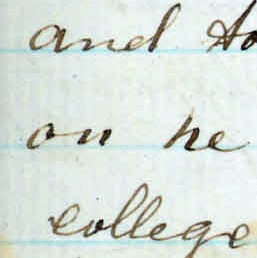 and to
on he
college